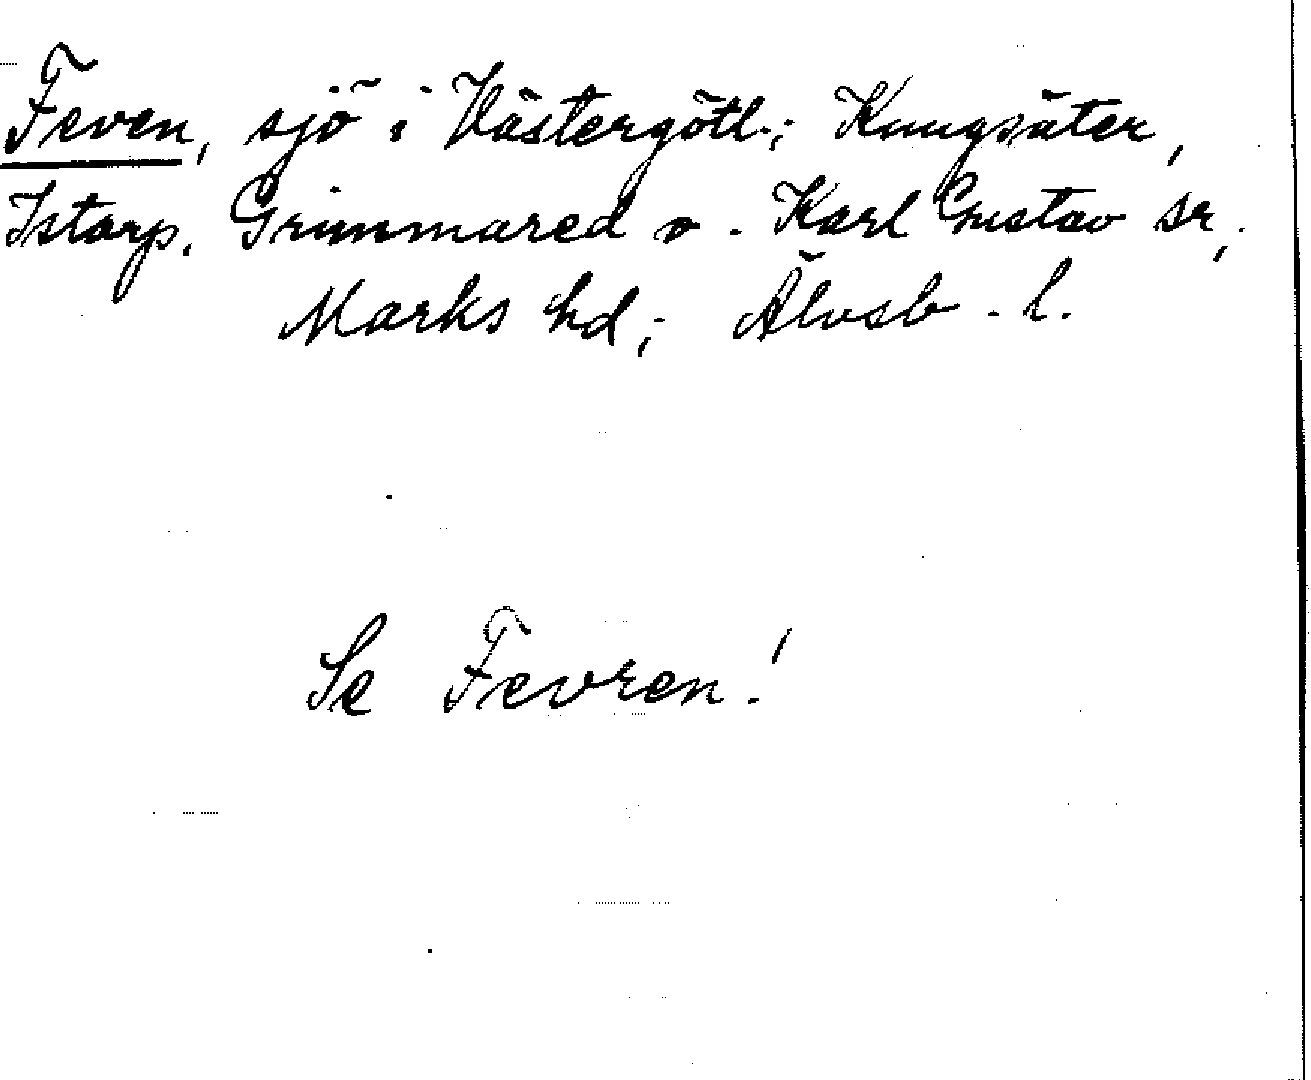 Feven, sjö i Västergötl.; Kungsäter,
Istorp, Grimmared o. Karl Gustav sr,
Marks hd, Älvsb. l.
Se Fevren!